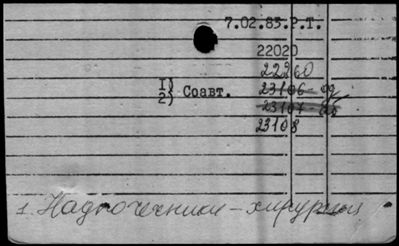 7.02.83.Р.Т.
22020
22260
1) 23106-
2) Соавт.
23107-
23108
1. Надпочечники - хирургия